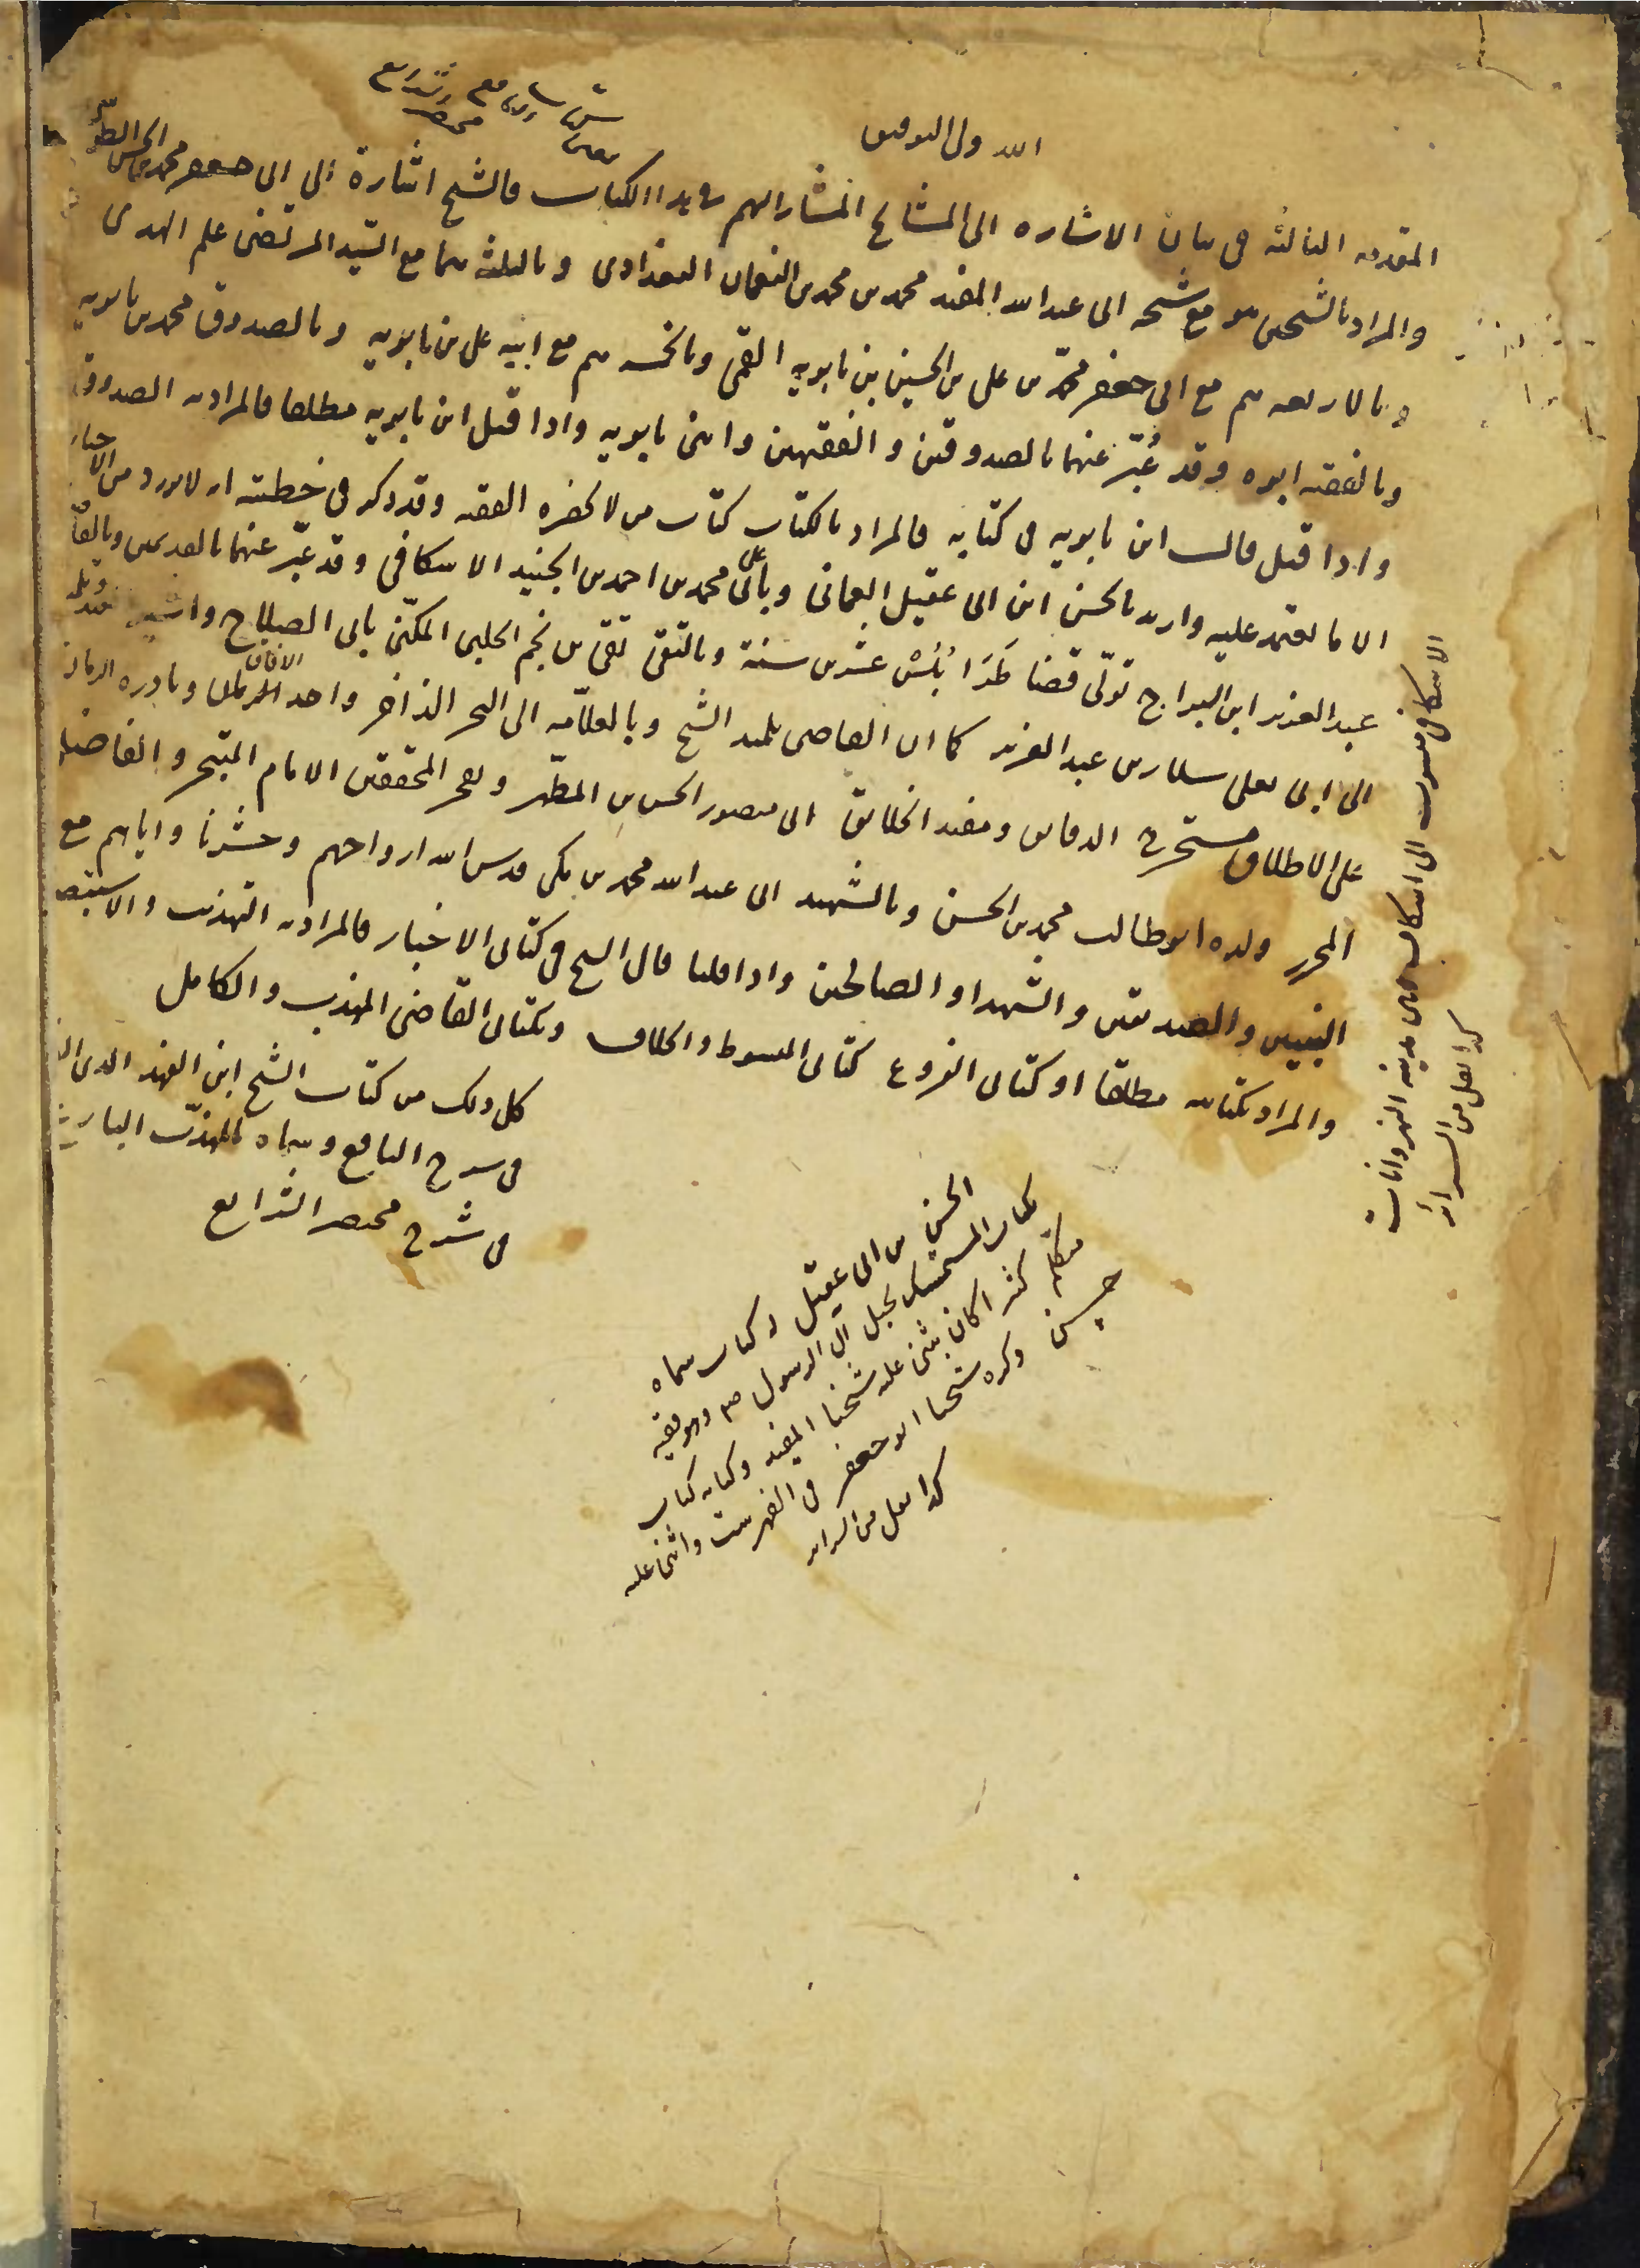 الله ولی التوفیق
المقدمه الثالثه فی بیان الاشاره الی المشایخ المشار الیهم فی هذا الکتاب فالشیخ اشارة الی ابی جعفر محمد بن الحسن الطوسی
والمراد بالشیخین هو مع شیخه ابی عبد الله المفید محمد بن محمد بن النعمان البغدادی وبالثلثه هما مع السید المرتضی علم الهدی
وبالاربعه هم مع ابی جعفر محمد بن علی بن الحسین بن بابویه القمی وبالخمسه هم مع ابیه علی بن بابویه وبالصدوق محمد بن بابویه
وبالفقیه ابوه وقد عُبّر عنهما بالصدوقین والفقیهین وابنی بابویه واذا قیل ابن بابویه مطلقا فالمراد به الصدوق
واذا قیل قال ابن بابویه فی کتابه فالمراد بالکتاب کتاب من لا یحضره الفقیه وقد ذکر فی خطبته انه لا یورد من الاخبار
الا ما یعتمد علیه وارید بالحسن ابن ابی عقیل العمانی وبابی علی محمد بن احمد بن الجنید الاسکافی وقد عبّر عنهما بالقدیمین وبالقا
عبد العزیز ابن البراج تولّی قضا طَرَابُلُسْ عشرین سنة وبالتقی تقی بن نجم الحلبی المکنّی بابی الصلاح واشیر
الی ابی یعلی سلار بن عبد العزیز کما ان القاضی تلمیذ الشیخ وبالعلّامه الی البحر الذاخر واحد الافاق ونادره الزمان
علی الاطلاق مستخرج الدقایق ومفید الخلایق ابی منصور الحسن بن المطهر وبفخر المحققین الامام المتبحر والفاضل
المحرر ولده ابو طالب محمد بن الحسن وبالشهید ابی عبد الله محمد بن مکی قدس الله ارواحهم وحشرنا وایاهم مع
النبیین والصدیقین والشهداء والصالحین واذا قلنا قال الشیخ فی کتابی الاخبار فالمراد به التهذیب والاستبصا
والمراد بکتابیه مطلقا او کتابی الفروع کتابی المبسوط والخلاف وبکتابی القاضی المهذب والکامل
کل ذلک من کتاب الشیخ ابن الفهد الذی
فی شرح النافع وسماه بالمهذّب البارع
فی شرح مختصر الشرایع
الاسکافی منسوب الی اسکاف وهی مدینه النهروانات
کذا نقل من السرائر
الحسن بن ابی عقیل له کتاب سماه
کتاب المتمسک بحبل آل الرسول ص وهو فقیه
متکلم کثیرا کان یثنی علیه شیخنا المفید وکتابه کتاب
حسن ذکره شیخنا ابو جعفر فی الفهرست واثنی علیه
کذا نقل من السرائر